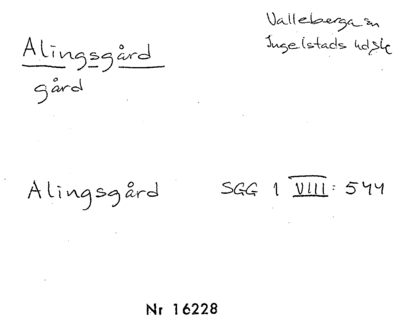 Alingsgård
gård
Valleberga sn
Ingelstads hd Sk
Alingsgård SGG 1 VIII: 544
Nr 16228